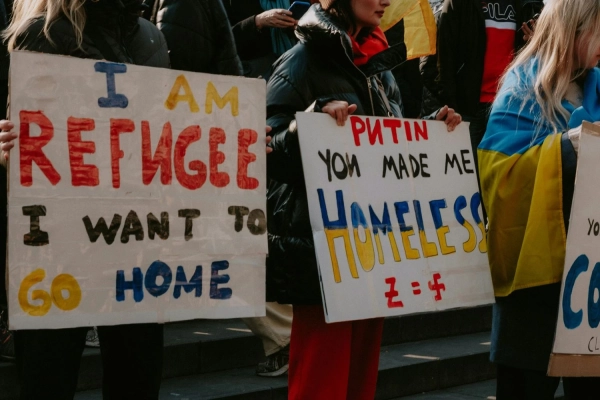 I AM
REFUGEE
I WANT TO
GO HOME
PUTIN
YOU MADE ME
HOMELESS
Z = 卐
FILA
YO
CO
CL